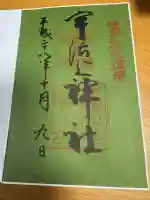 世界文化遺産
宇治上神社
平成二八年十月九日